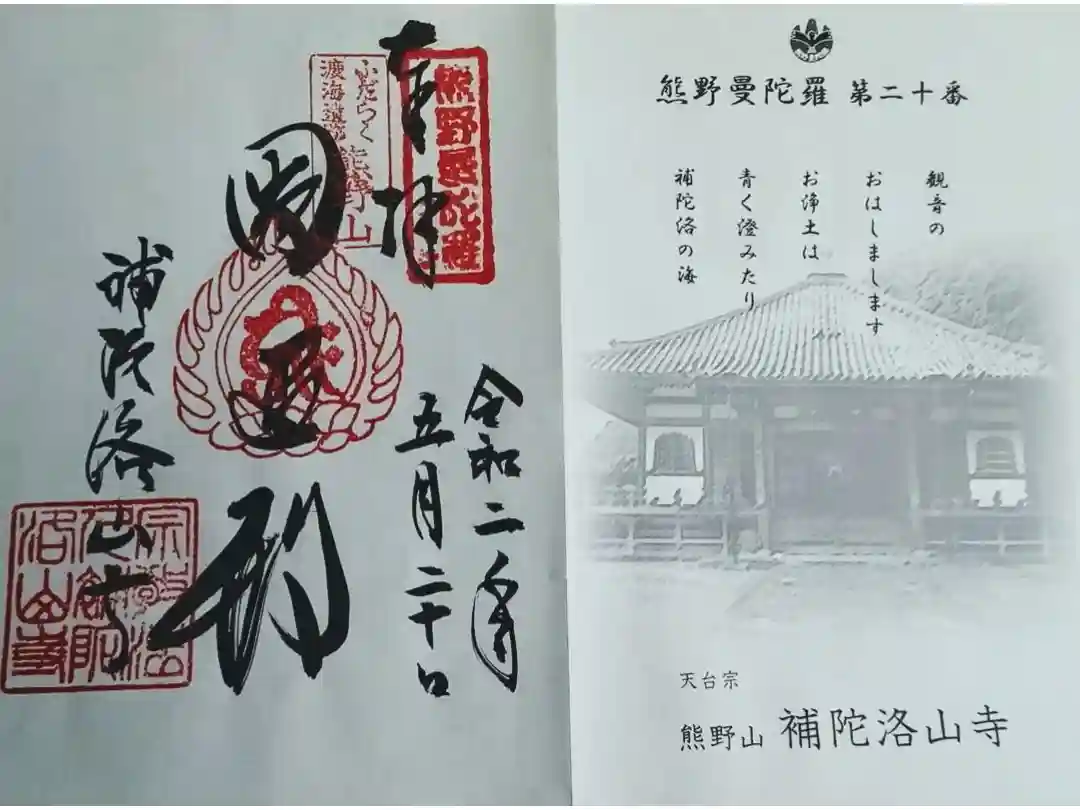 奉拝
熊野曼陀羅
ふだらく
渡海遺跡
熊野山
令和二年
五月二十日
補陀洛山寺
熊野曼陀羅 第二十番
観音の
おはしまします
お浄土は
青く澄みたり
補陀洛の海
天台宗
熊野山 補陀洛山寺